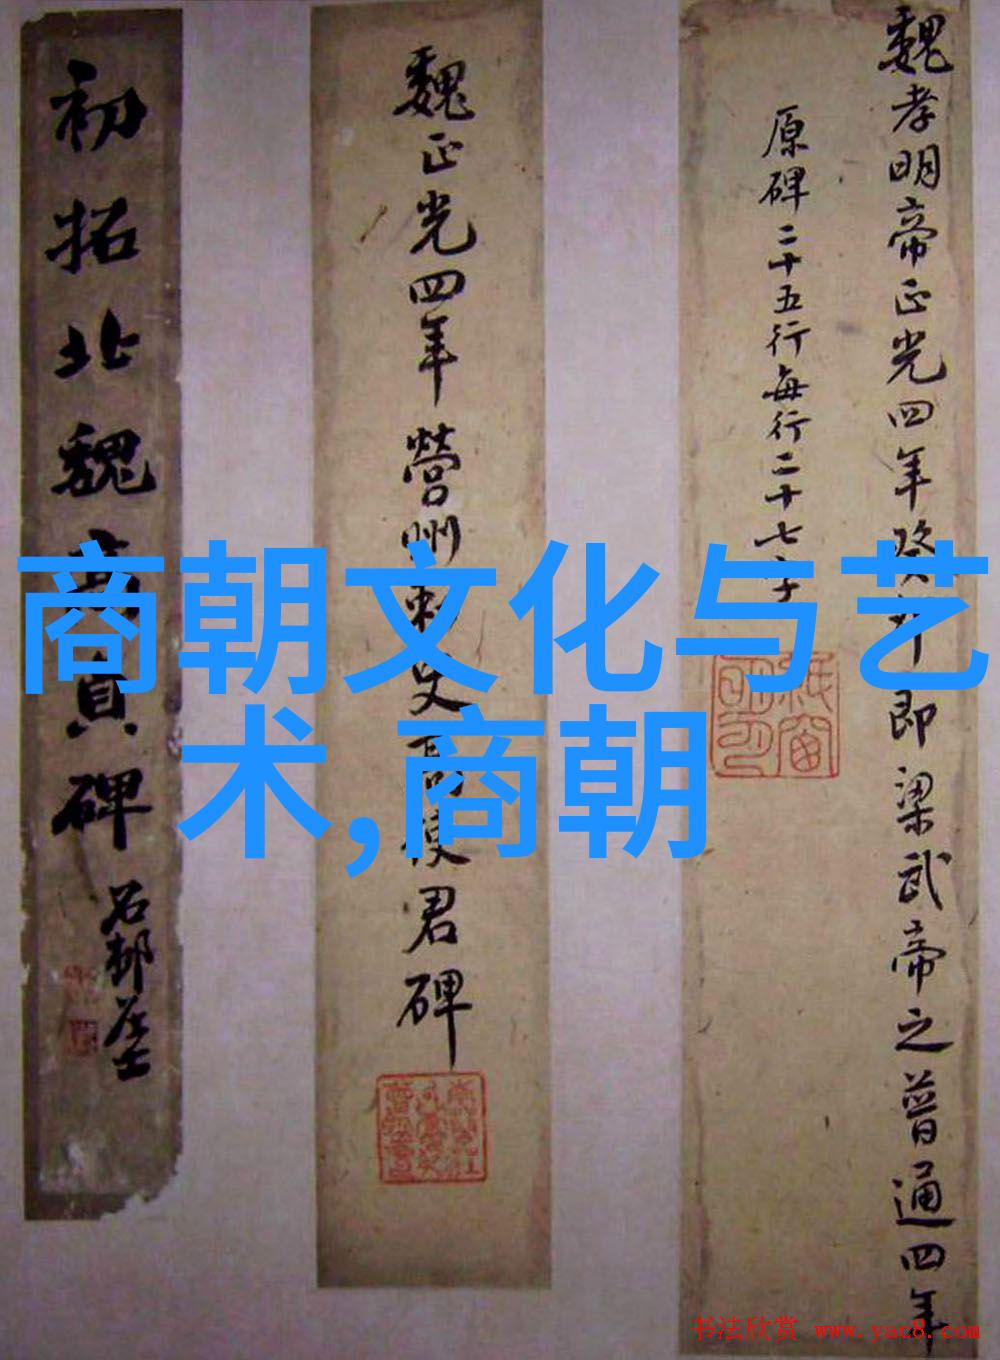 魏孝明帝正光四年癸卯即梁武帝之普通四年
原碑二十五行每行二十七字
魏正光四年營州刺史高使君碑
初拓北魏高貞碑
商朝文化与艺
术,商朝
书法欣赏 www.yac8.com